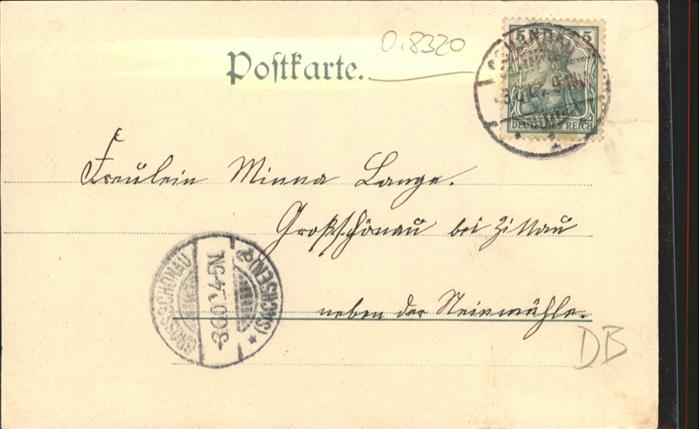 0.8320
5 5
Postkarte.
DEUTSCHES REICH
Fräulein Minna Lange.
Großschönau bei Zittau
neben der Steinmühle.
GROSSSCHÖNAU
(SACHSEN)
4-5N.
DB